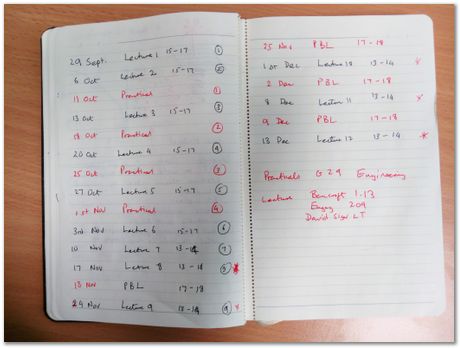 29 Sept. Lecture 1 15-17 1
6 Oct Lecture 2 15-17 2
11 Oct Practical 1
13 Oct Lecture 3 15-17 3
18 Oct Practical 2
20 Oct Lecture 4 15-17 4
25 Oct Practical 3
27 Oct Lecture 5 15-17 5
1st Nov Practical 4
3rd Nov Lecture 6 15-17 6
10 Nov Lecture 7 13-14 7
17 Nov Lecture 8 13-18 8 *
18 Nov PBL 17-18
24 Nov Lecture 9 13-14 9 *
25 Nov PBL 17-18
1st Dec Lecture 10 13-14 *
2 Dec PBL 17-18
8 Dec Lecture 11 13-14 *
9 Dec PBL 17-18
13 Dec Lecture 12 13-14 *
Practicals G29 Engineering
Lecture Bancroft 1.13
Engng 209
David LT